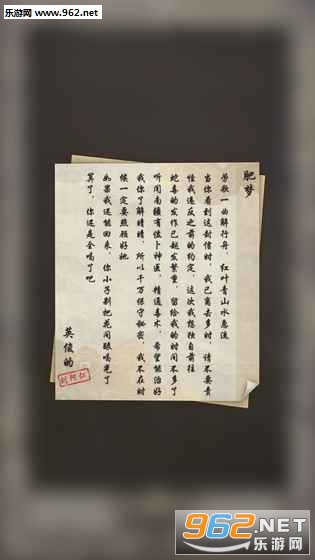 乐游网 www.962.net
肥梦
劳歌一曲解行舟，红叶青山水急流
当你看到这封信时，我已离去多时，请不要责
怪我违反之前的约定，这次我想独自前往
蛇毒的发作已越发繁重，留给我的时间不多了
听闻南疆有位卜神医，精通毒术，希望能治好
我你了解晴晴，所以千万保守秘密，我不在时
候一定要照顾好她
如果我还能回来，你小子别把花间眠喝光了
算了，你还是全喝了吧
英俊的
962.NET
乐游网